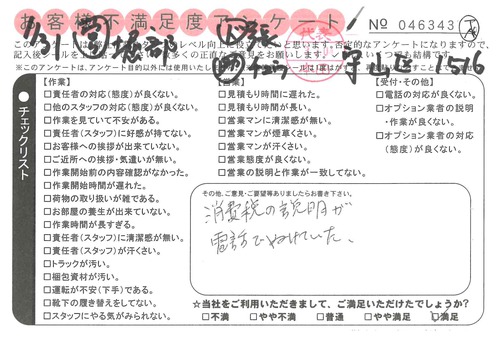 お客様不満足度アンケート
№ 046343
堀部
守山区 1516
チェックリスト
【作業】
□責任者の対応(態度)が良くない。
□他のスタッフの対応(態度)が良くない。
□作業を見ていて不安がある。
□責任者(スタッフ)に好感が持てない。
□お客様への挨拶が出来ていない。
□ご近所への挨拶・気遣いが無い。
□作業開始前の内容確認がなかった。
□作業開始時間が遅れた。
□荷物の取り扱いが雑である。
□お部屋の養生が出来ていない。
□作業時間が長すぎる。
□責任者(スタッフ)に清潔感が無い。
□責任者(スタッフ)が汗くさい。
□トラックが汚い。
□梱包資材が汚い。
□運転が不安(下手)である。
□靴下の履き替えをしてない。
□スタッフにやる気がみられない。
【営業】
□見積もり時間に遅れた。
□見積もり時間が長い。
□営業マンに清潔感が無い。
□営業マンが煙草くさい。
□営業マンが汗くさい。
□営業態度が良くない。
□営業の説明と作業が一致してない。
【受付・その他】
□電話の対応が良くない。
□オプション業者の説明
・作業が良くない。
□オプション業者の対応
(態度)が良くない。
その他、ご意見・ご要望等ありましたらお書き下さい。
消費税の説明が
電話でぬけていた。
☆当社をご利用いただきまして、ご満足いただけたでしょうか?
□不満 □やや不満 □普通 □やや満足 □満足